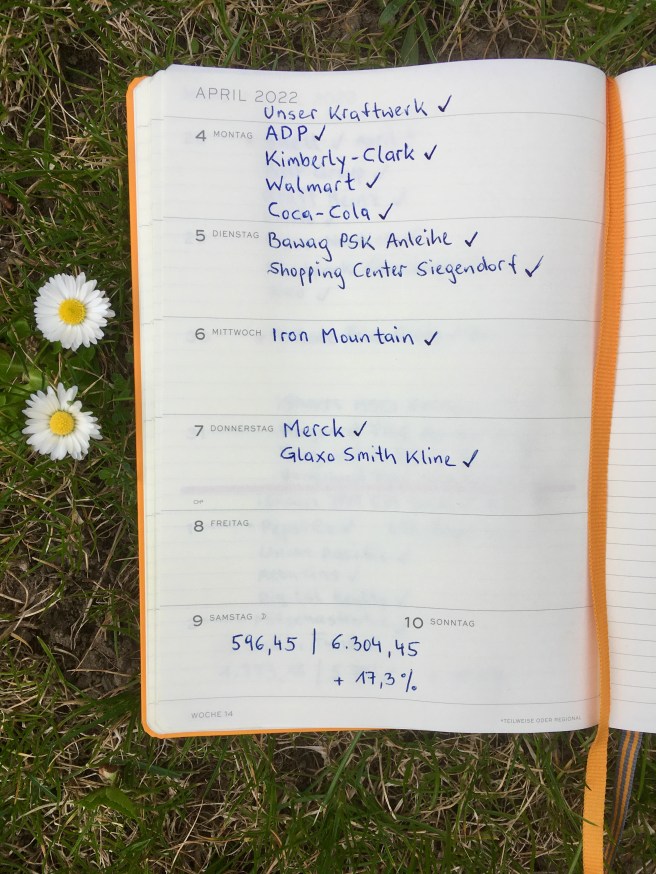 APRIL 2022
Unser Kraftwerk ✓
4 MONTAG ADP ✓
Kimberly-Clark ✓
Walmart ✓
Coca-Cola ✓
5 DIENSTAG Bawag PSK Anleihe ✓
Shopping Center Siegendorf ✓
6 MITTWOCH Iron Mountain ✓
7 DONNERSTAG Merck ✓
Glaxo Smith Kline ✓
8 FREITAG
9 SAMSTAG 10 SONNTAG
596,45 | 6.304,45
+ 17,3%
WOCHE 14 *TEILWEISE ODER REGIONAL